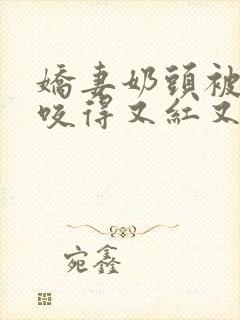 嬌妻奶頭被
咬得又紅又
宛鑫